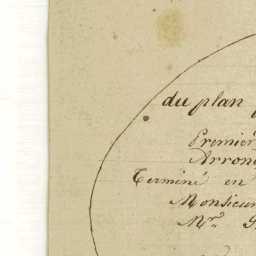 du plan
Premier
Arron
Terminé en
Monsieur
Mr.